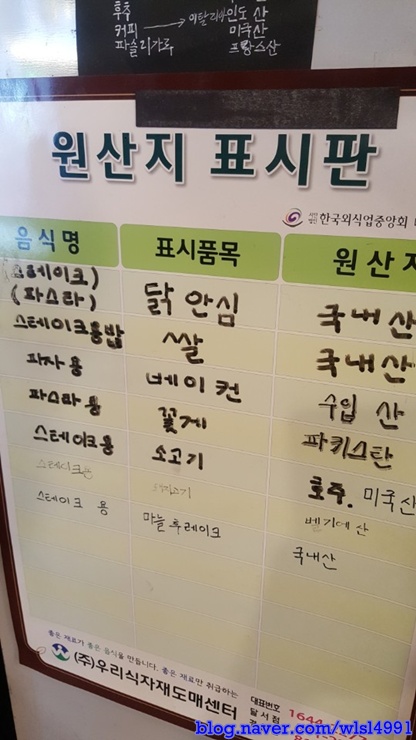 후추
인도 산
커피
이탈리아
미국산
파슬리가루
프랑스산
원산지 표시판
한국외식업중앙회
음식명 표시품목 원산지
(스테이크)
(파스타) 닭 안심 국내산
스테이크용밥 쌀 국내산
피자용 베이컨 수입 산
파스타 용 꽃게 파키스탄
스테이크용 소고기 호주. 미국산
스테이크용 벨기에 산
스테이크 용 마늘 후레이크 국내산
좋은 재료가 좋은 음식을 만듭니다. 좋은 재료만 취급하는
(주)우리식자재도매센터
대표번호 1644
달서점
blog.naver.com/wlsl4991